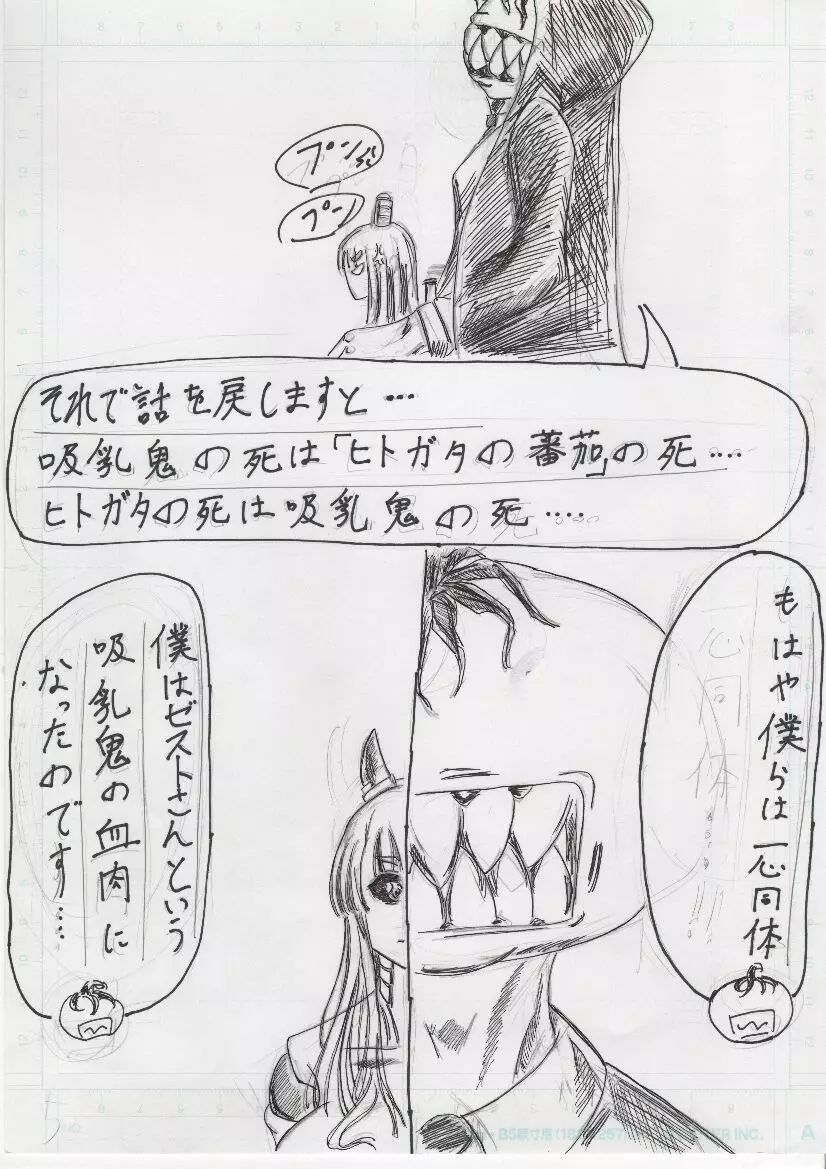 プンプン
プン
それで話を戻しますと…
吸乳鬼の死は「ヒトガタの蕃茄」の死….
ヒトガタの死は吸乳鬼の死….
もはや僕らは一心同体
僕はゼストさんという
吸乳鬼の血肉に
なったのです….
5
A